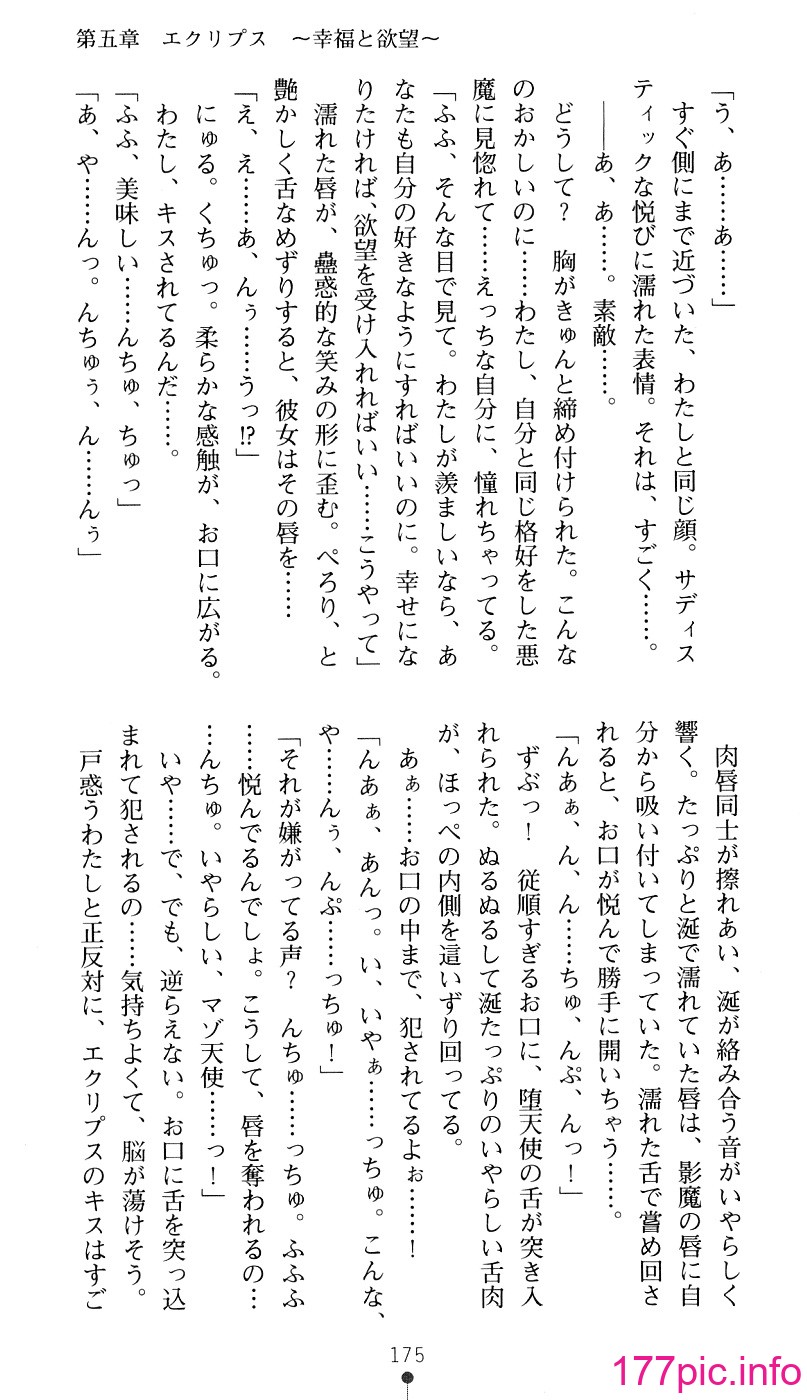 第五章　エクリプス　～幸福と欲望～
「う、あ……あ……」
　すぐ側にまで近づいた、わたしと同じ顔。サディス
ティックな悦びに濡れた表情。それは、すごく……。
　――あ、あ……。素敵……。
　どうして？　胸がきゅんと締め付けられた。こんな
のおかしいのに……わたし、自分と同じ格好をした悪
魔に見惚れて……えっちな自分に、憧れちゃってる。
「ふふ、そんな目で見て。わたしが羨ましいなら、あ
なたも自分の好きなようにすればいいのに。幸せにな
りたければ、欲望を受け入れればいい……こうやって」
　濡れた唇が、蠱惑的な笑みの形に歪む。ぺろり、と
艶かしく舌なめずりすると、彼女はその唇を……
「え、え……あ、んぅ……うっ!?」
　にゅる。くちゅっ。柔らかな感触が、お口に広がる。
　わたし、キスされてるんだ……。
「ふふ、美味しい……んちゅ、ちゅっ」
「あ、や……んっ。んちゅぅ、ん……んぅ」
　肉唇同士が擦れあい、涎が絡み合う音がいやらしく
響く。たっぷりと涎で濡れていた唇は、影魔の唇に自
分から吸い付いてしまっていた。濡れた舌で嘗め回さ
れると、お口が悦んで勝手に開いちゃう……。
「んあぁ、ん、ん……ちゅ、んぷ、んっ！」
　ずぶっ！　従順すぎるお口に、堕天使の舌が突き入
れられた。ぬるぬるして涎たっぷりのいやらしい舌肉
が、ほっぺの内側を這いずり回ってる。
　あぁ……お口の中まで、犯されてるよぉ……！
「んあぁ、あんっ。い、いやぁ……っちゅ。こんな、
や……んぅ、んぷ……っちゅ！」
「それが嫌がってる声？　んちゅ……っちゅ。ふふふ
……悦んでるんでしょ。こうして、唇を奪われるの…
…んちゅ。いやらしい、マゾ天使……っ！」
　いや……で、でも、逆らえない。お口に舌を突っ込
まれて犯されるの……気持ちよくて、脳が蕩けそう。
　戸惑うわたしと正反対に、エクリプスのキスはすご
175
177pic.info